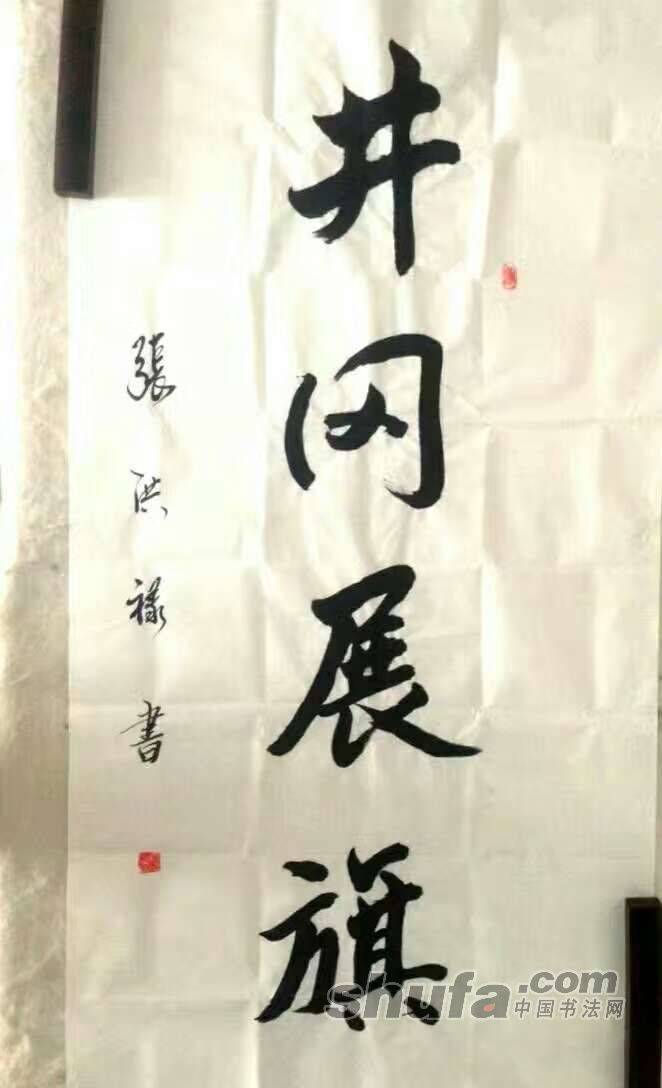 井冈展旗
張洪禄書
shufa.com
中国书法网